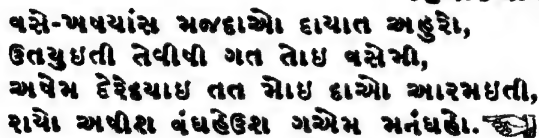 વસે-ખષયાંસ મજદાઓ દાયાત અહુરો,
ઉતયુઇતી તેવીષી ગત તોઇ વસેમી,
અષેમ દેરેદ્યાઇ તત મોઇ દાઓ આરમઇતી,
રાયો અષીશ વંઘહેઉશ ગએમ મનંઘહો.